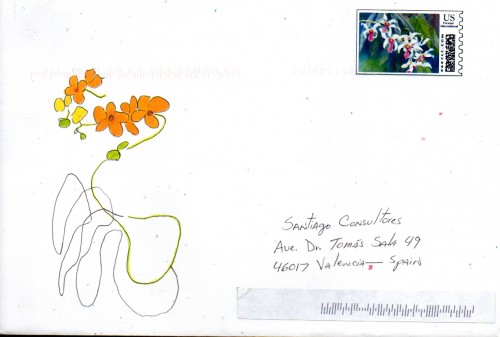 US
Santiago Consultores
Ave. Dr. Tomás Sala 49
46017 Valencia — Spain